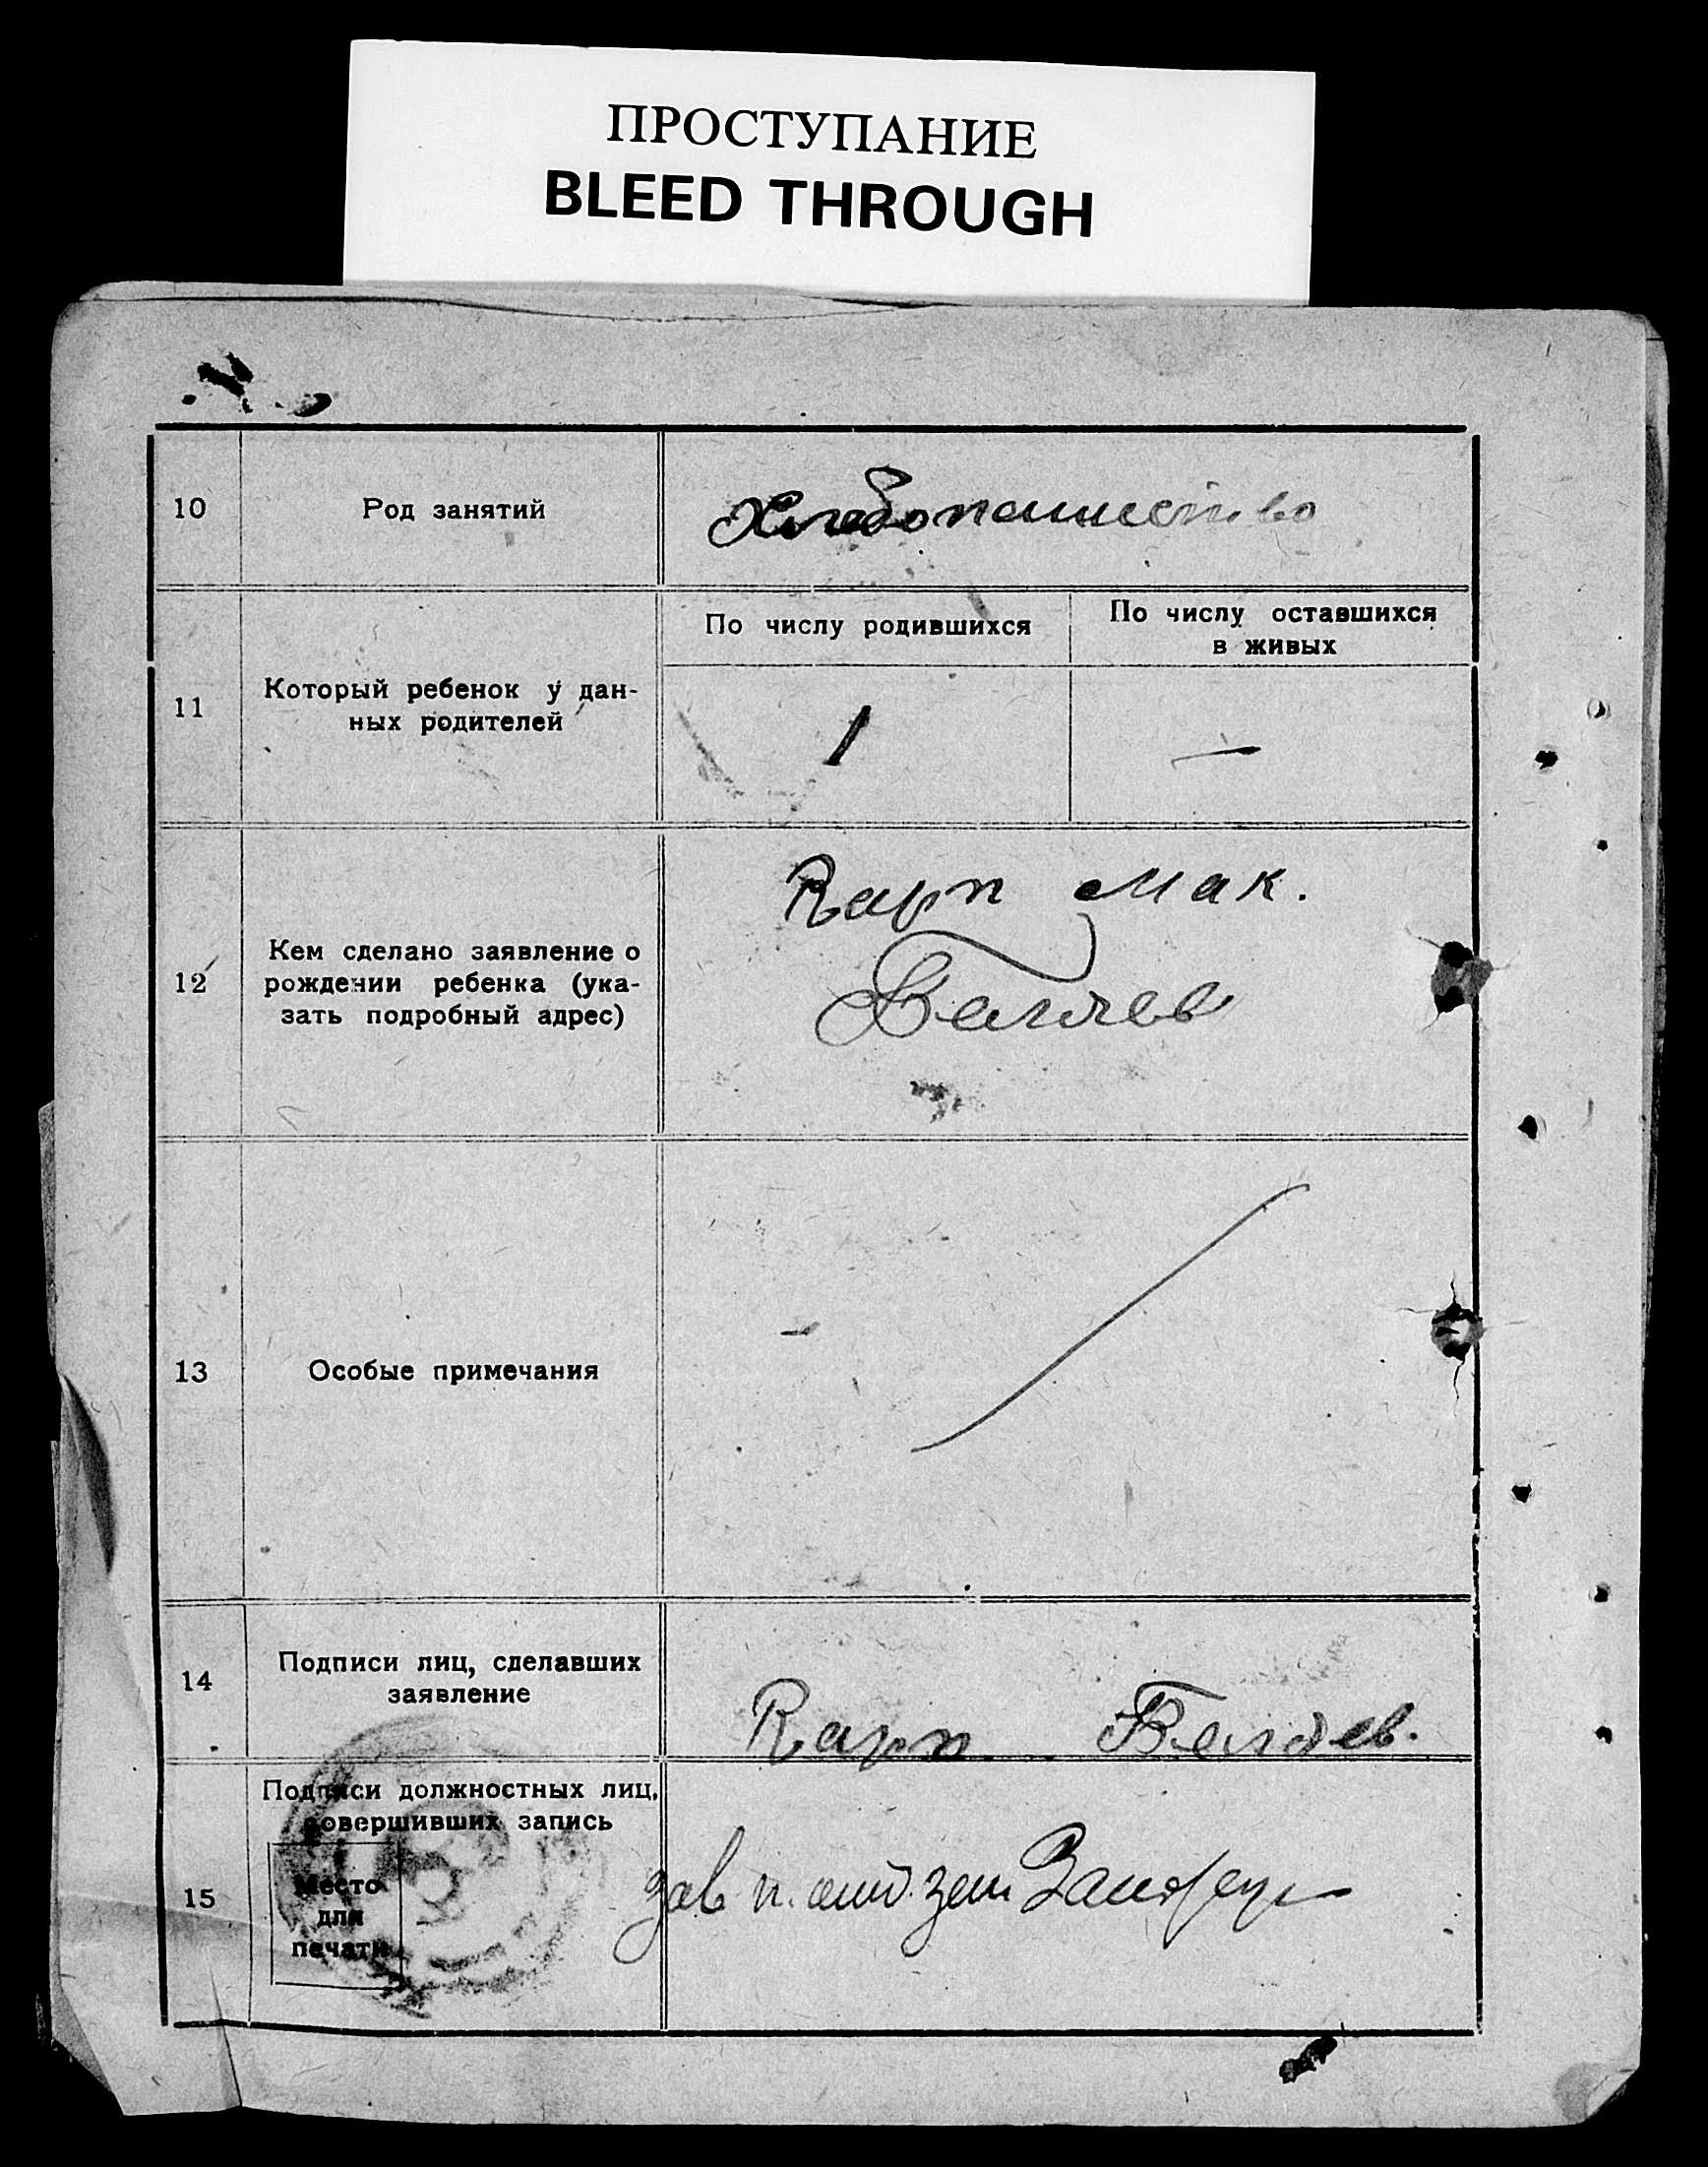 ПРОСТУПАНИЕ
BLEED THROUGH
10 Род занятий Хлебопашество
По числу родившихся
По числу оставшихся
в живых
11 Который ребенок у дан-
ных родителей
1 —
12 Кем сделано заявление о
рождении ребенка (ука-
зать подробный адрес)
Карп Мак.
Беляев
13 Особые примечания
14 Подписи лиц, сделавших
заявление
Карп Беляев.
15 Подписи должностных лиц,
совершивших запись
Место
для
печати
зав п.